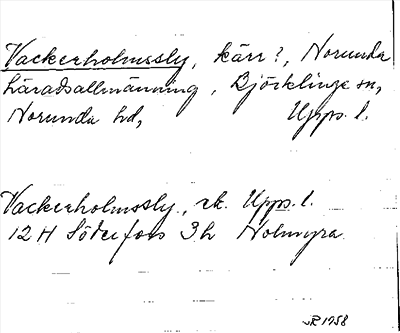 Vackerholmssly, kärr?, Norunda
häradsallmänning, Björklinge sn,
Norunda hd, Upps. l.
Vackerholmssly, ek. Upps. l.
12 H Söderfors 3h Nolmyra
JR 1958